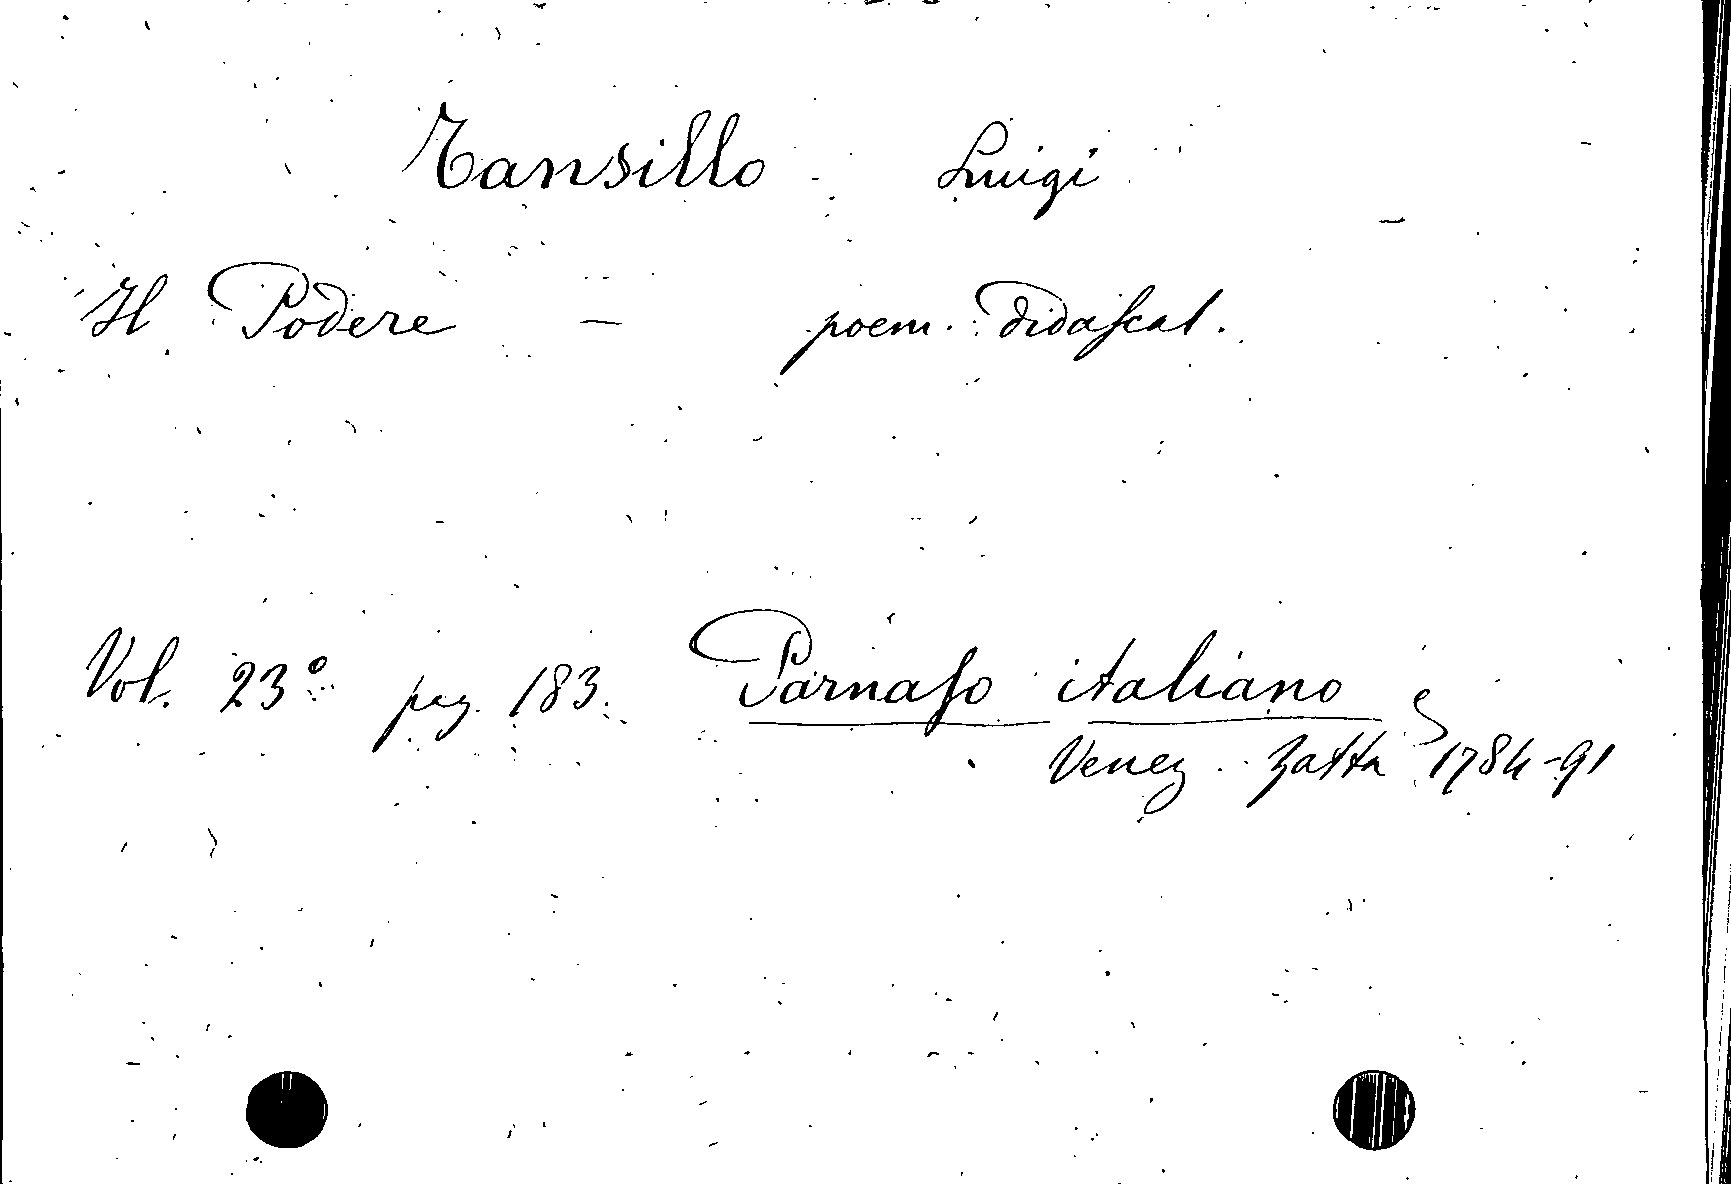 Tansillo Luigi
Il Podere — poem. didaſcal.
Vol. 23° pag. 183. Parnaſo italiano
Venez. Zatta 1784-91